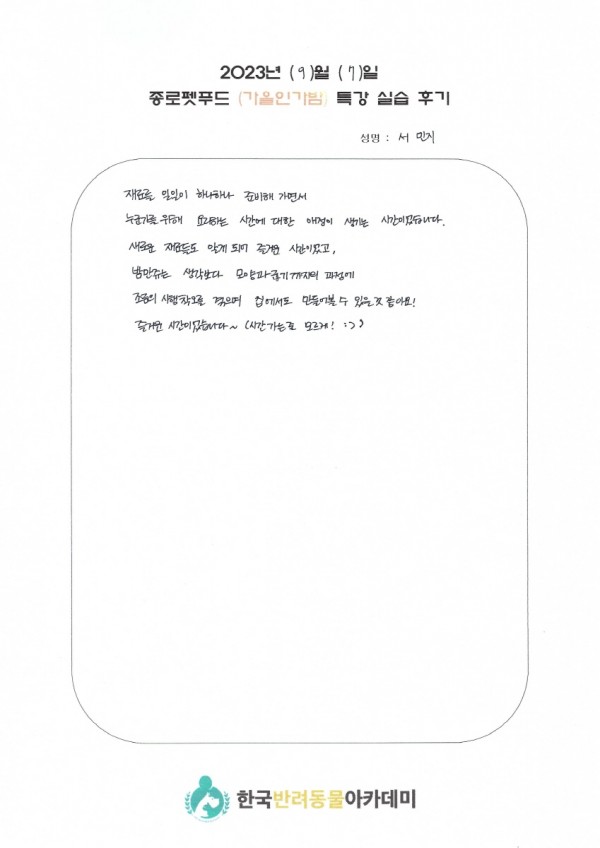 2023년 (9)월 (7)일
종로펫푸드 (가을인가밤) 특강 실습 후기
성명 : 서 민지
재료를 일일이 하나하나 준비해 가면서
누군가를 위해 요리하는 시간에 대한 애정이 생기는 시간이었습니다.
새로운 재료들도 알게 되며 즐거운 시간이었고,
밤만쥬는 생각보다 모양과 굽기까지의 과정에
조금의 시행착오를 겪으며 집에서도 만들어볼 수 있을것 같아요!
즐거운 시간이었습니다~ (시간가는줄 모르게! :>)
한국반려동물아카데미